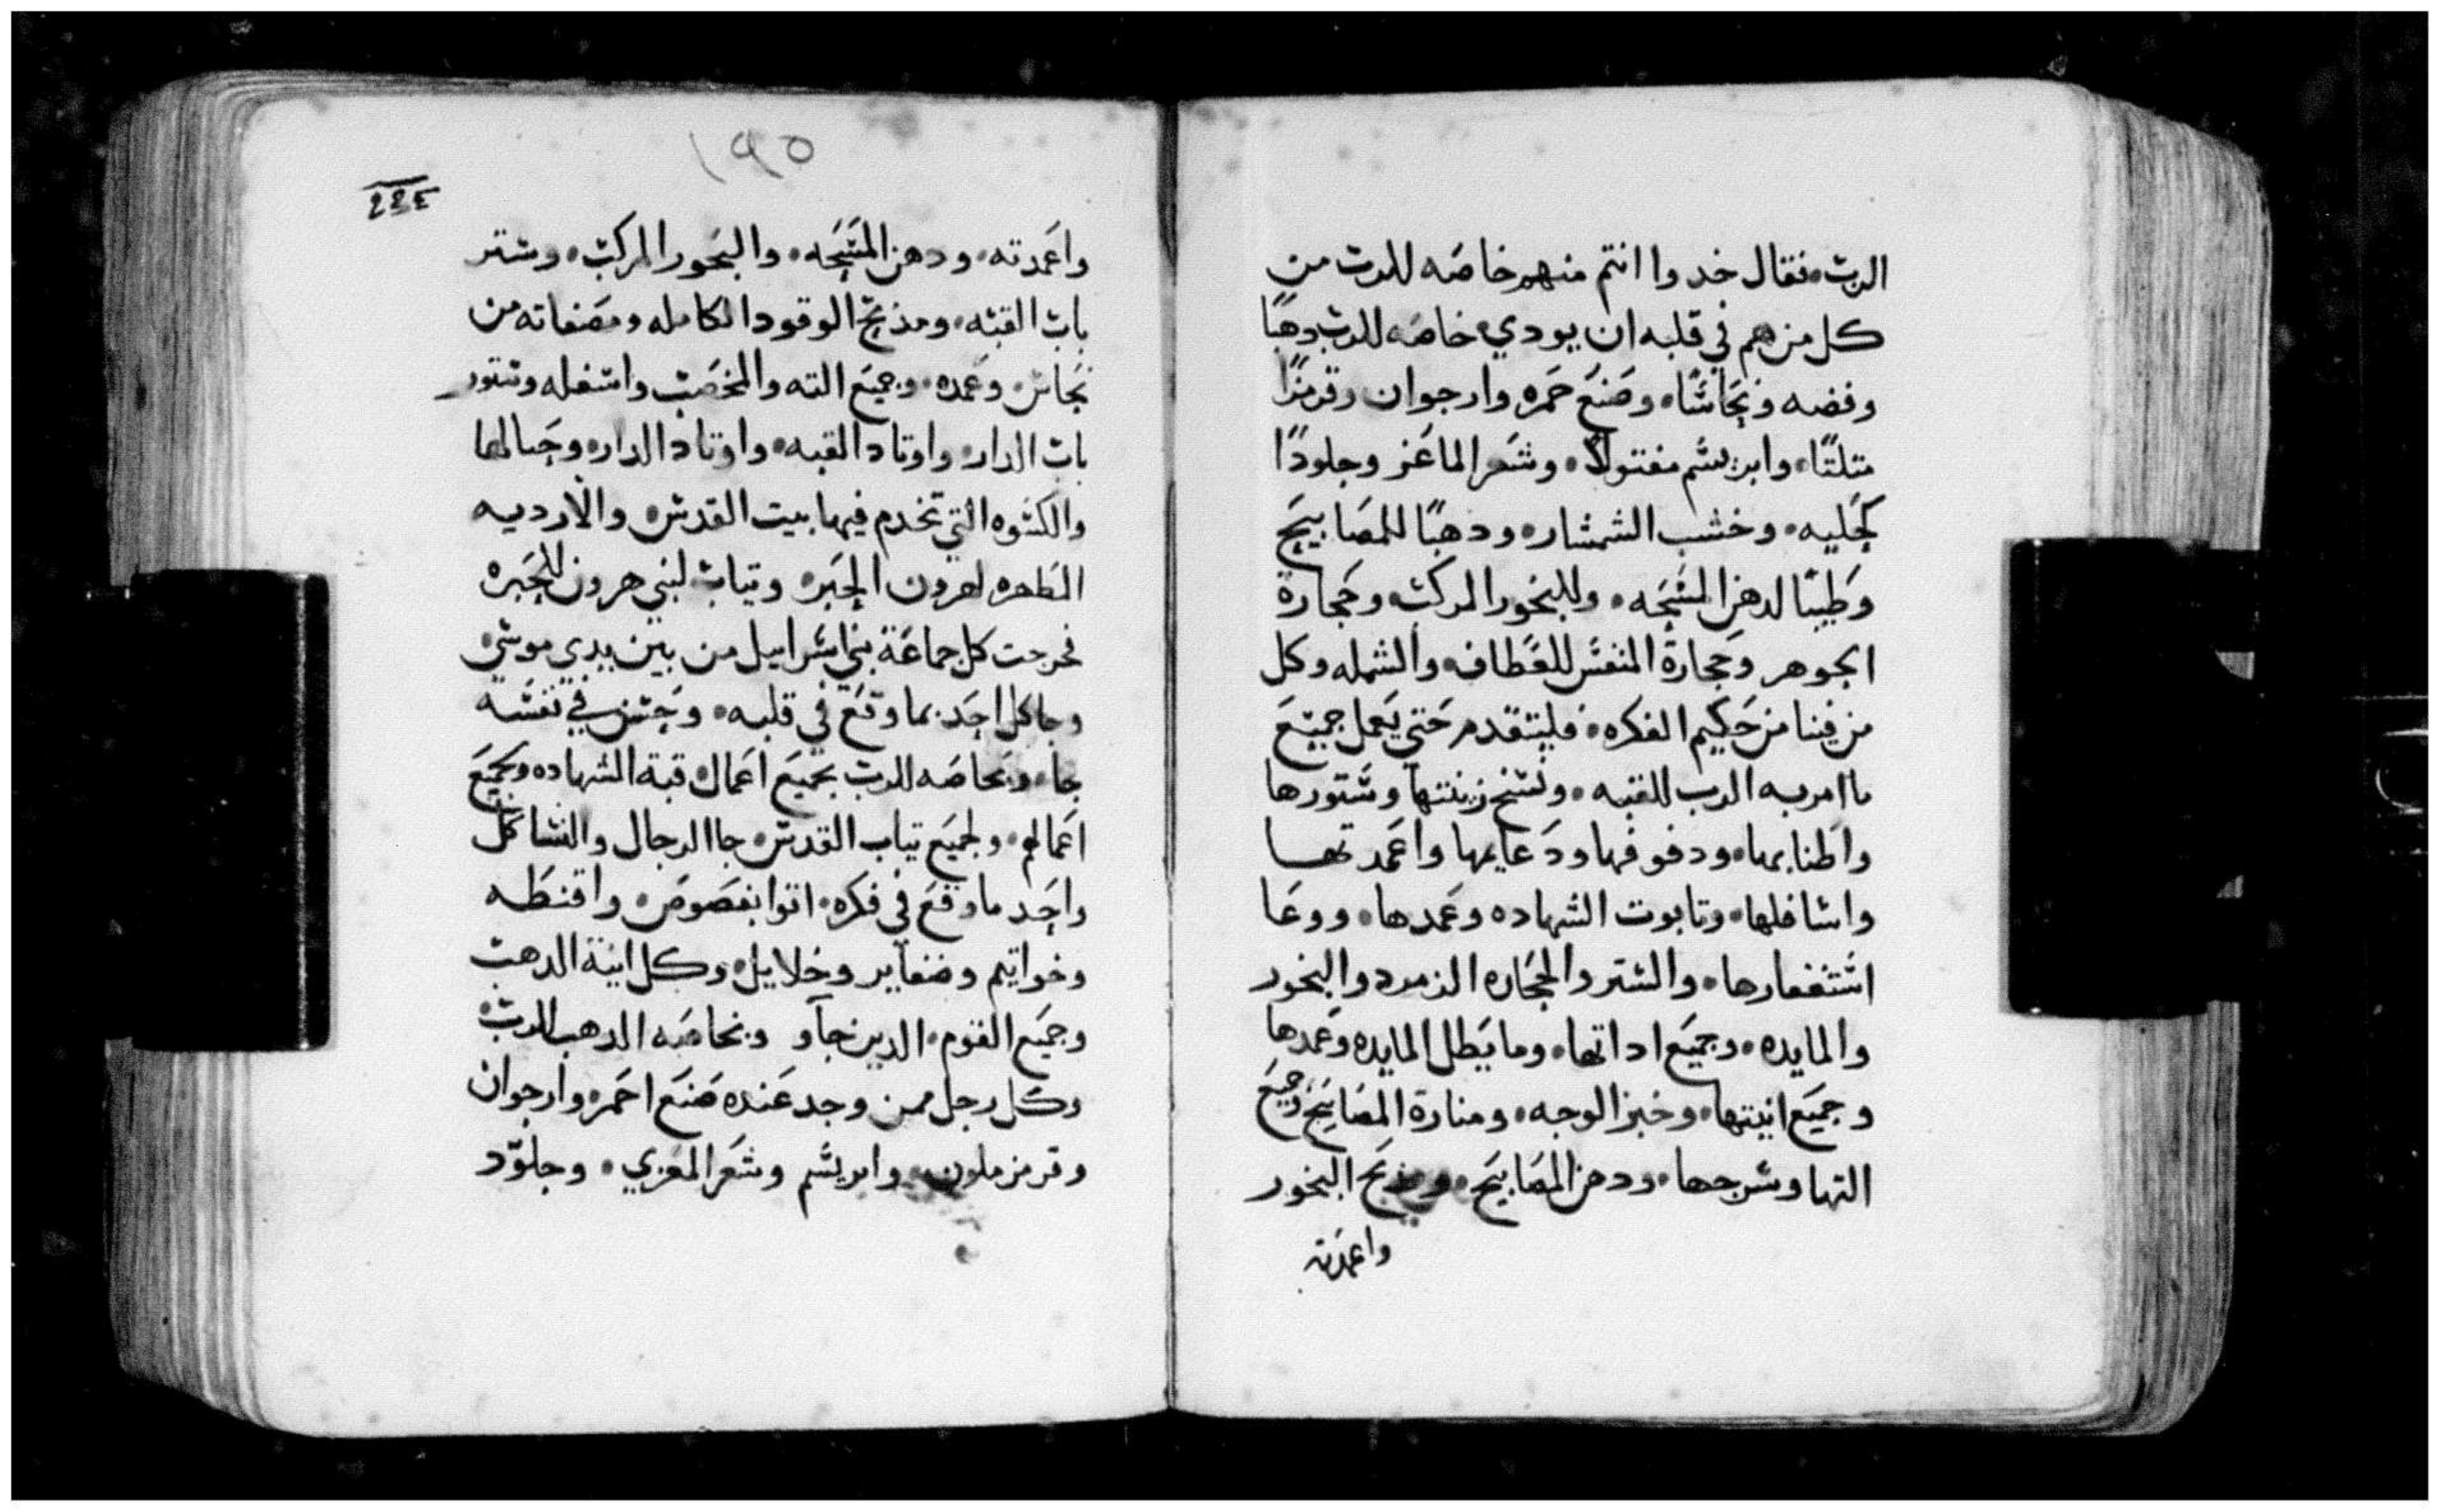 الرب فقال خدوا انتم منهم خاصه للرب من
كل من هم في قلبه ان يودي خاصه للرب دهبًا
وفضه ونحاسًا وصنع حمره وارجوان وقرمزًا
متلتًا وابريسم مفتولًا وشعر الماعز وجلودًا
كحليه وخشب الشمشار ودهبًا للمصابيح
وطيبًا لدهن المسحه وللبخور المركب وحجارة
الجوهر وحجارة المنقس للعطاف والشمله وكل
من فينا من حكيم الفكره فليتقدم حتي يعمل جميع
ما امر به الرب للقبه ونسخ زينتها وستورها
واطنابها ودفوفها ودعايمها واعمدتها
واسافلها وتابوت الشهاده وعمدها ووعا
استغفارها والستر والحجاره الزمرد والبخور
والمايده وجميع اداتها وما يظل المايده وعمدها
وجميع انيتها وخبز الوجه ومنارة المصابيح وجميع
التها وسرجها ودهن المصابيح ومذبح البخور
واعمدته
١٩٥
واعمدته ودهن المسحه والبخور المركب وستر
باب القبه ومذبح الوقود الكامله ومصفاته من
نحاس وعمده وجميع الته والمخضب واسفله وستور
باب الدار واوتاد القبه واوتاد الدار وحبالها
والكسوه التي تخدم فيها بيت القدس والارديه
المطهره لهرون الحبر وتياب لبني هرون للحبره
فخرجت كل جماعة بني اسراييل من بين يدي موسي
وجا كل احد بما وقع في قلبه وحسن في نفسه
جا وبخاصه للرب بجميع اعمال قبة الشهاده وبجميع
اعمالهم ولجميع تياب القدس جا الرجال والنسا كل
واحد ما وقع في فكره اتوا بفصوص واقنطه
وخواتيم وضفاير وخلايل وكل انية الدهب
وجميع القوم الدين جاو وبخاصه الدهب للرب
وكل رجل ممن وجد عنده صنع احمر وارجوان
وقرمز ملون وابريسم وشعر المعزي وجلود